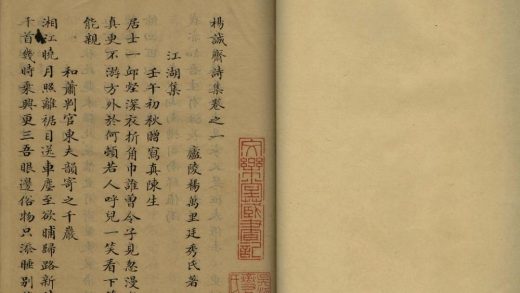 楊誠齋詩集卷之一
廬陵楊萬里廷秀氏著
江湖集
壬午初秋贈寫真陳生
居士一邱壑深衣折角巾誰曾令子見忽漫
真更不游方外於何頓若人呼兒一笑看下
能親
和蕭判官東夫韻寄之千巖
湘江曉月照離裾目送車塵至欲晡歸路新
千首幾時乘興更三吾眼邊俗物只添睡別